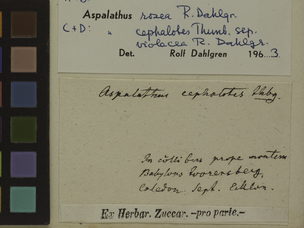 Aspalathus rosea R. Dahlgr.
C + D: " cephalotes Thunb. ssp.
violacea R. Dahlgr.
Det. Rolf Dahlgren 196 3.
Aspalathus cephalotes Thbg
In collibus prope montem
Babylons Toorensberg,
Caledon. Sept. Ecklon.
Ex Herbar. Zuccar. –pro parte.–